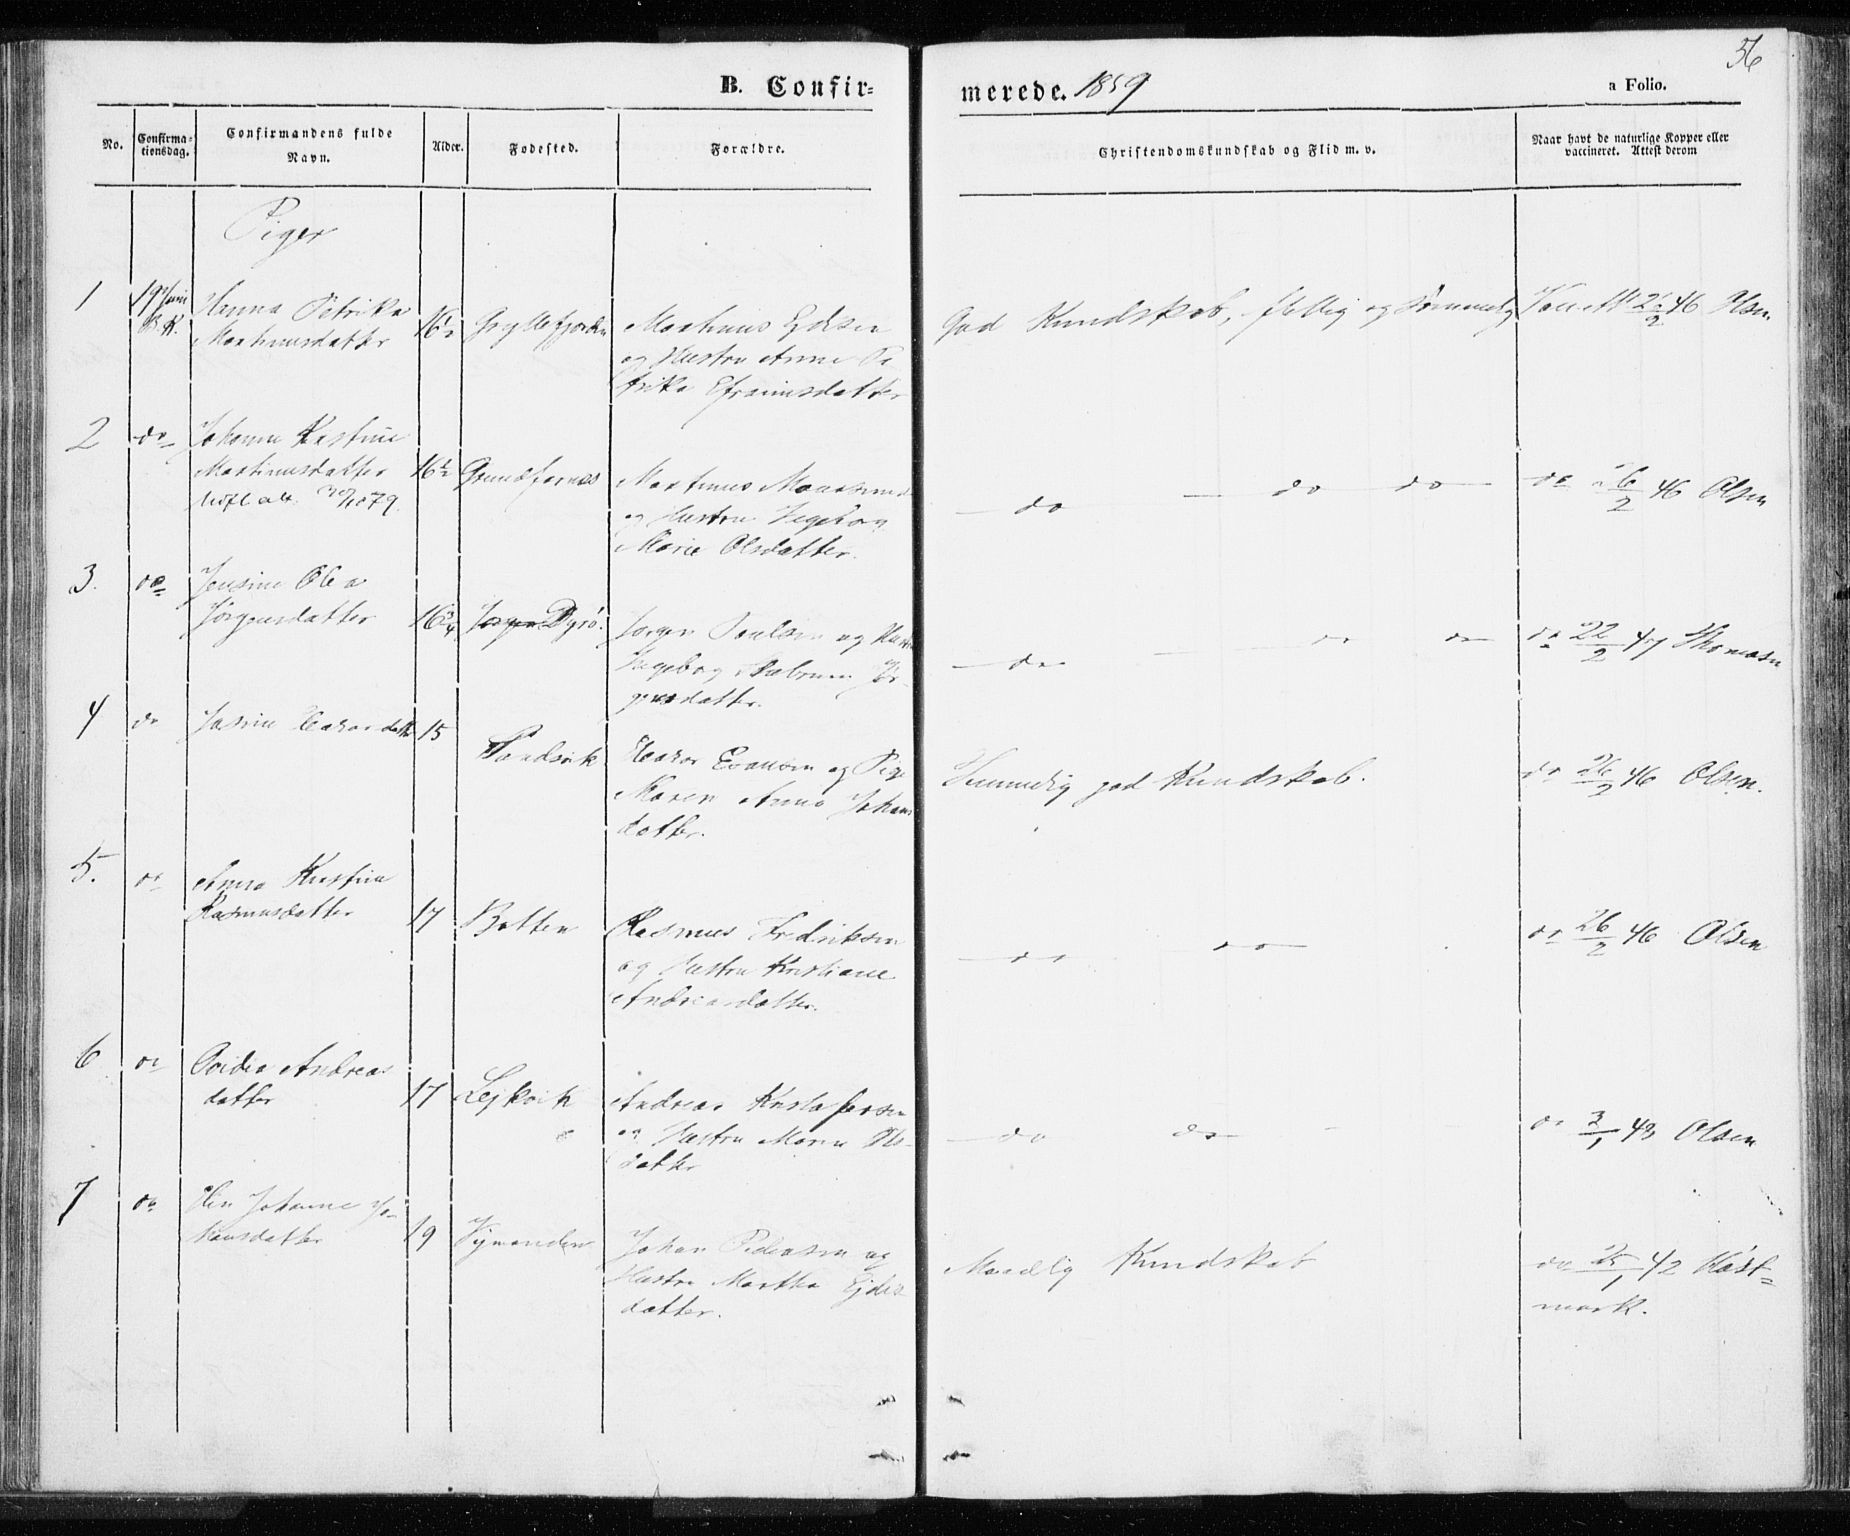 56
B. Confir- merede. 1859
a Folio.
No.
Confirma-
tionsdag.
Confirmandens fulde
Navn.
Alder.
Fodested.
Forældre.
Christendomskundskab og Flid m. v.
Naar havt de naturlige Kopper eller
vaccineret. Attest derom
Piger
1 19 Juni Hanna Petrika
Martinusdatter 16½ Gryllefjorden Martinus
og Hustru Anne Pe
trika Efraimsdatter
God Kundskab, flittig og sømmelig 46 Olsen
2 do Johanna
Martinusdatter 16½ Martinus
1879.
og Hustru Ingeborg
Marie Olsdatter.
do do do do 26/2 46 Olsen
3. do Jensine Olea
Jørgensdatter 16¾ Dyrö. Jørgen Poulsen og
Ingeborg Jør-
gensdatter.
do do do do 22/2 47 Thomasen
4 do 15
Sandvik og Pige
Maren Anna Johans
datter.
Temmelig god Kundskab. do 26/2 46 Olsen.
5. do Anna
Rasmusdatter 17 Botten Rasmus Fredriksen
og Hustru Kristiane
Andreasdatter.
do do do 26/2 46 Olsen
6 do Andreas
datter 17 Andreas Kristofersen
og Hustru Maren Ols-
datter
do do do 3/1 43 Olsen
7 do Johanne Jo-
hansdatter 19 Johan Pedersen og
Hustru Martha
datter.
Maadelig Kundskab do 42 Høst-
mark.